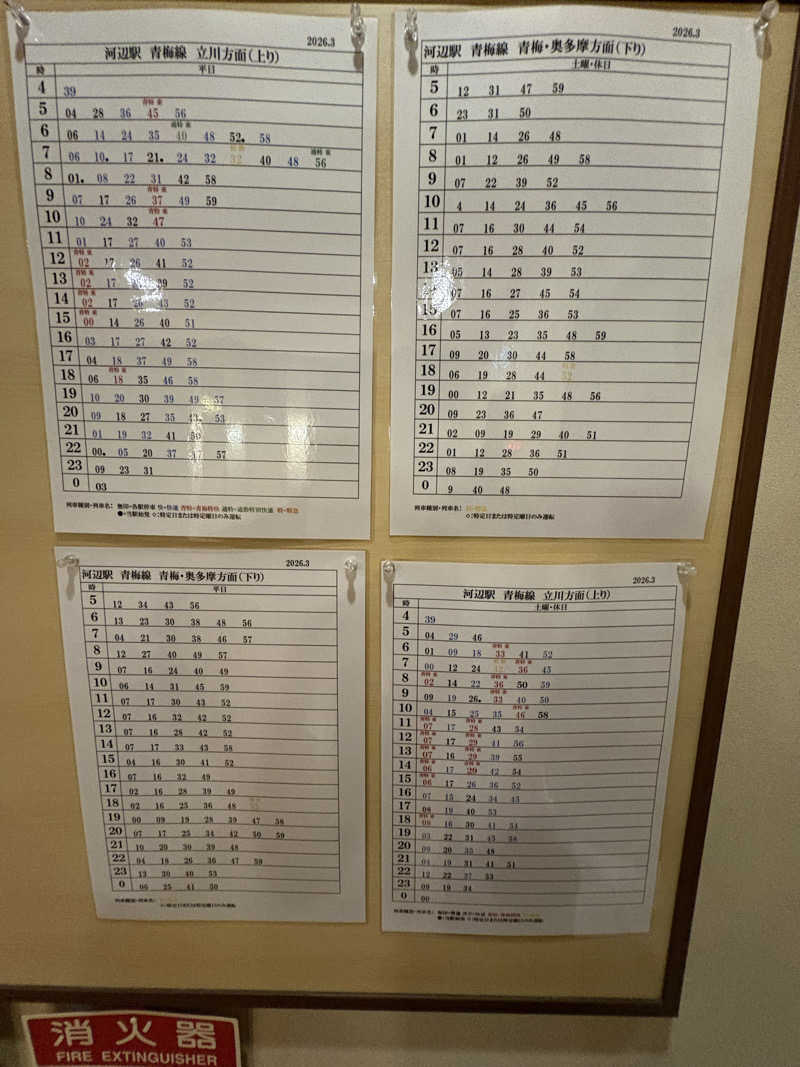 2026.3
河辺駅 青梅線 立川方面(上り)
時 平日
4 39
青特 東
5 04 28 36 45 56
通特 東
6 06 14 24 35 40 48 52● 58
通特 東
7 06 10● 17 21● 24 32 32 40 48 56
8 01● 08 22 31 42 58
青特 東
9 07 17 26 37 49 59
青特 東
10 10 24 32 47
11 01 17 27 40 53
青特 東
12 02 17 26 41 52
青特 東
13 02 17 39 52
青特 東
14 02 17 26 43 52
青特 東
15 00 14 26 40 51
16 03 17 27 42 52
17 04 18 37 49 58
青特 東
18 06 18 35 46 58
19 10 20 30 39 49 57
20 09 18 27 35 53
21 01 19 32 41 50
22 00● 05 20 37 47 57
23 09 23 31
0 03
列車種別・列車名: 無印=各駅停車 快=快速 青特=青梅特快 通特=通勤特別快速 特=特急
●=当駅始発 ◇:特定日または特定曜日のみ運転
2026.3
河辺駅 青梅線 青梅・奥多摩方面(下り)
時 土曜・休日
5 12 31 47 59
6 23 31 50
7 01 14 26 48
8 01 12 26 49 58
9 07 22 39 52
10 4 14 24 36 45 56
11 07 16 30 44 54
12 07 16 28 40 52
13 05 14 28 39 53
14 07 16 27 45 54
15 07 16 25 36 53
16 05 13 23 35 48 59
17 09 20 30 44 58
18 06 19 28 44 52
19 00 12 21 35 48 56
20 09 23 36 47
21 02 09 19 29 40 51
22 01 12 28 36 51
23 08 19 35 50
0 9 40 48
列車種別・列車名: 特=特急
◇:特定日または特定曜日のみ運転
2026.3
河辺駅 青梅線 青梅・奥多摩方面(下り)
時 平日
5 12 34 43 56
6 13 23 30 38 48 56
7 04 21 30 38 46 57
8 12 27 40 49 57
9 07 16 24 40 49
10 06 14 31 45 59
11 07 17 30 43 52
12 07 16 32 42 52
13 07 16 28 42 52
14 07 17 33 43 58
15 04 16 30 41 52
16 07 16 32 49
17 02 16 28 39 49
18 02 16 25 36 48
19 00 09 19 28 39 47 58
20 07 17 25 34 42 50 59
21 10 20 30 39 48
22 04 18 26 36 47 59
23 13 30 40 53
0 06 25 41 50
列車種別・列車名:
◇:特定日または特定曜日のみ運転
2026.3
河辺駅 青梅線 立川方面(上り)
時 土曜・休日
4 39
5 04 29 46
青特 東
6 01 09 18 33 41 52
青特 東
7 00 12 24 36 45
青特 東 青特 東
8 02 14 22 36 50 59
青特 東
9 09 19 26● 33 40 50
青特 東
10 04 15 25 35 46 58
青特 東 青特 東
11 07 17 28 43 54
青特 東 青特 東
12 07 17 29 41 56
青特 東 青特 東
13 07 16 29 39 55
青特 東 青特 東
14 06 17 29 42 54
青特 東
15 06 17 26 36 52
16 07 15 24 34 45
17 08 19 40 53
青特 東
18 09 16 30 41 51
19 03 22 31 45 58
20 09 20 35 48
21 04 19 31 41 51
22 12 22 37 53
23 09 19 34
0 00
列車種別・列車名:
●=当駅始発 ◇:特定日または特定曜日のみ運転
消火器
FIRE EXTINGUISHER